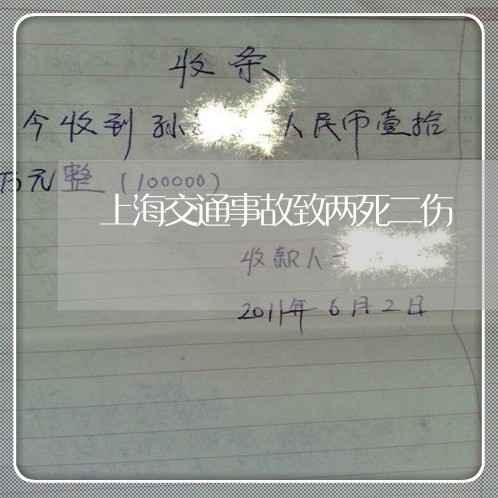 收条
今收到孙 人民币壹拾
万元整(100000)
上海交通事故致两死二伤
收款人
2011年6月2日